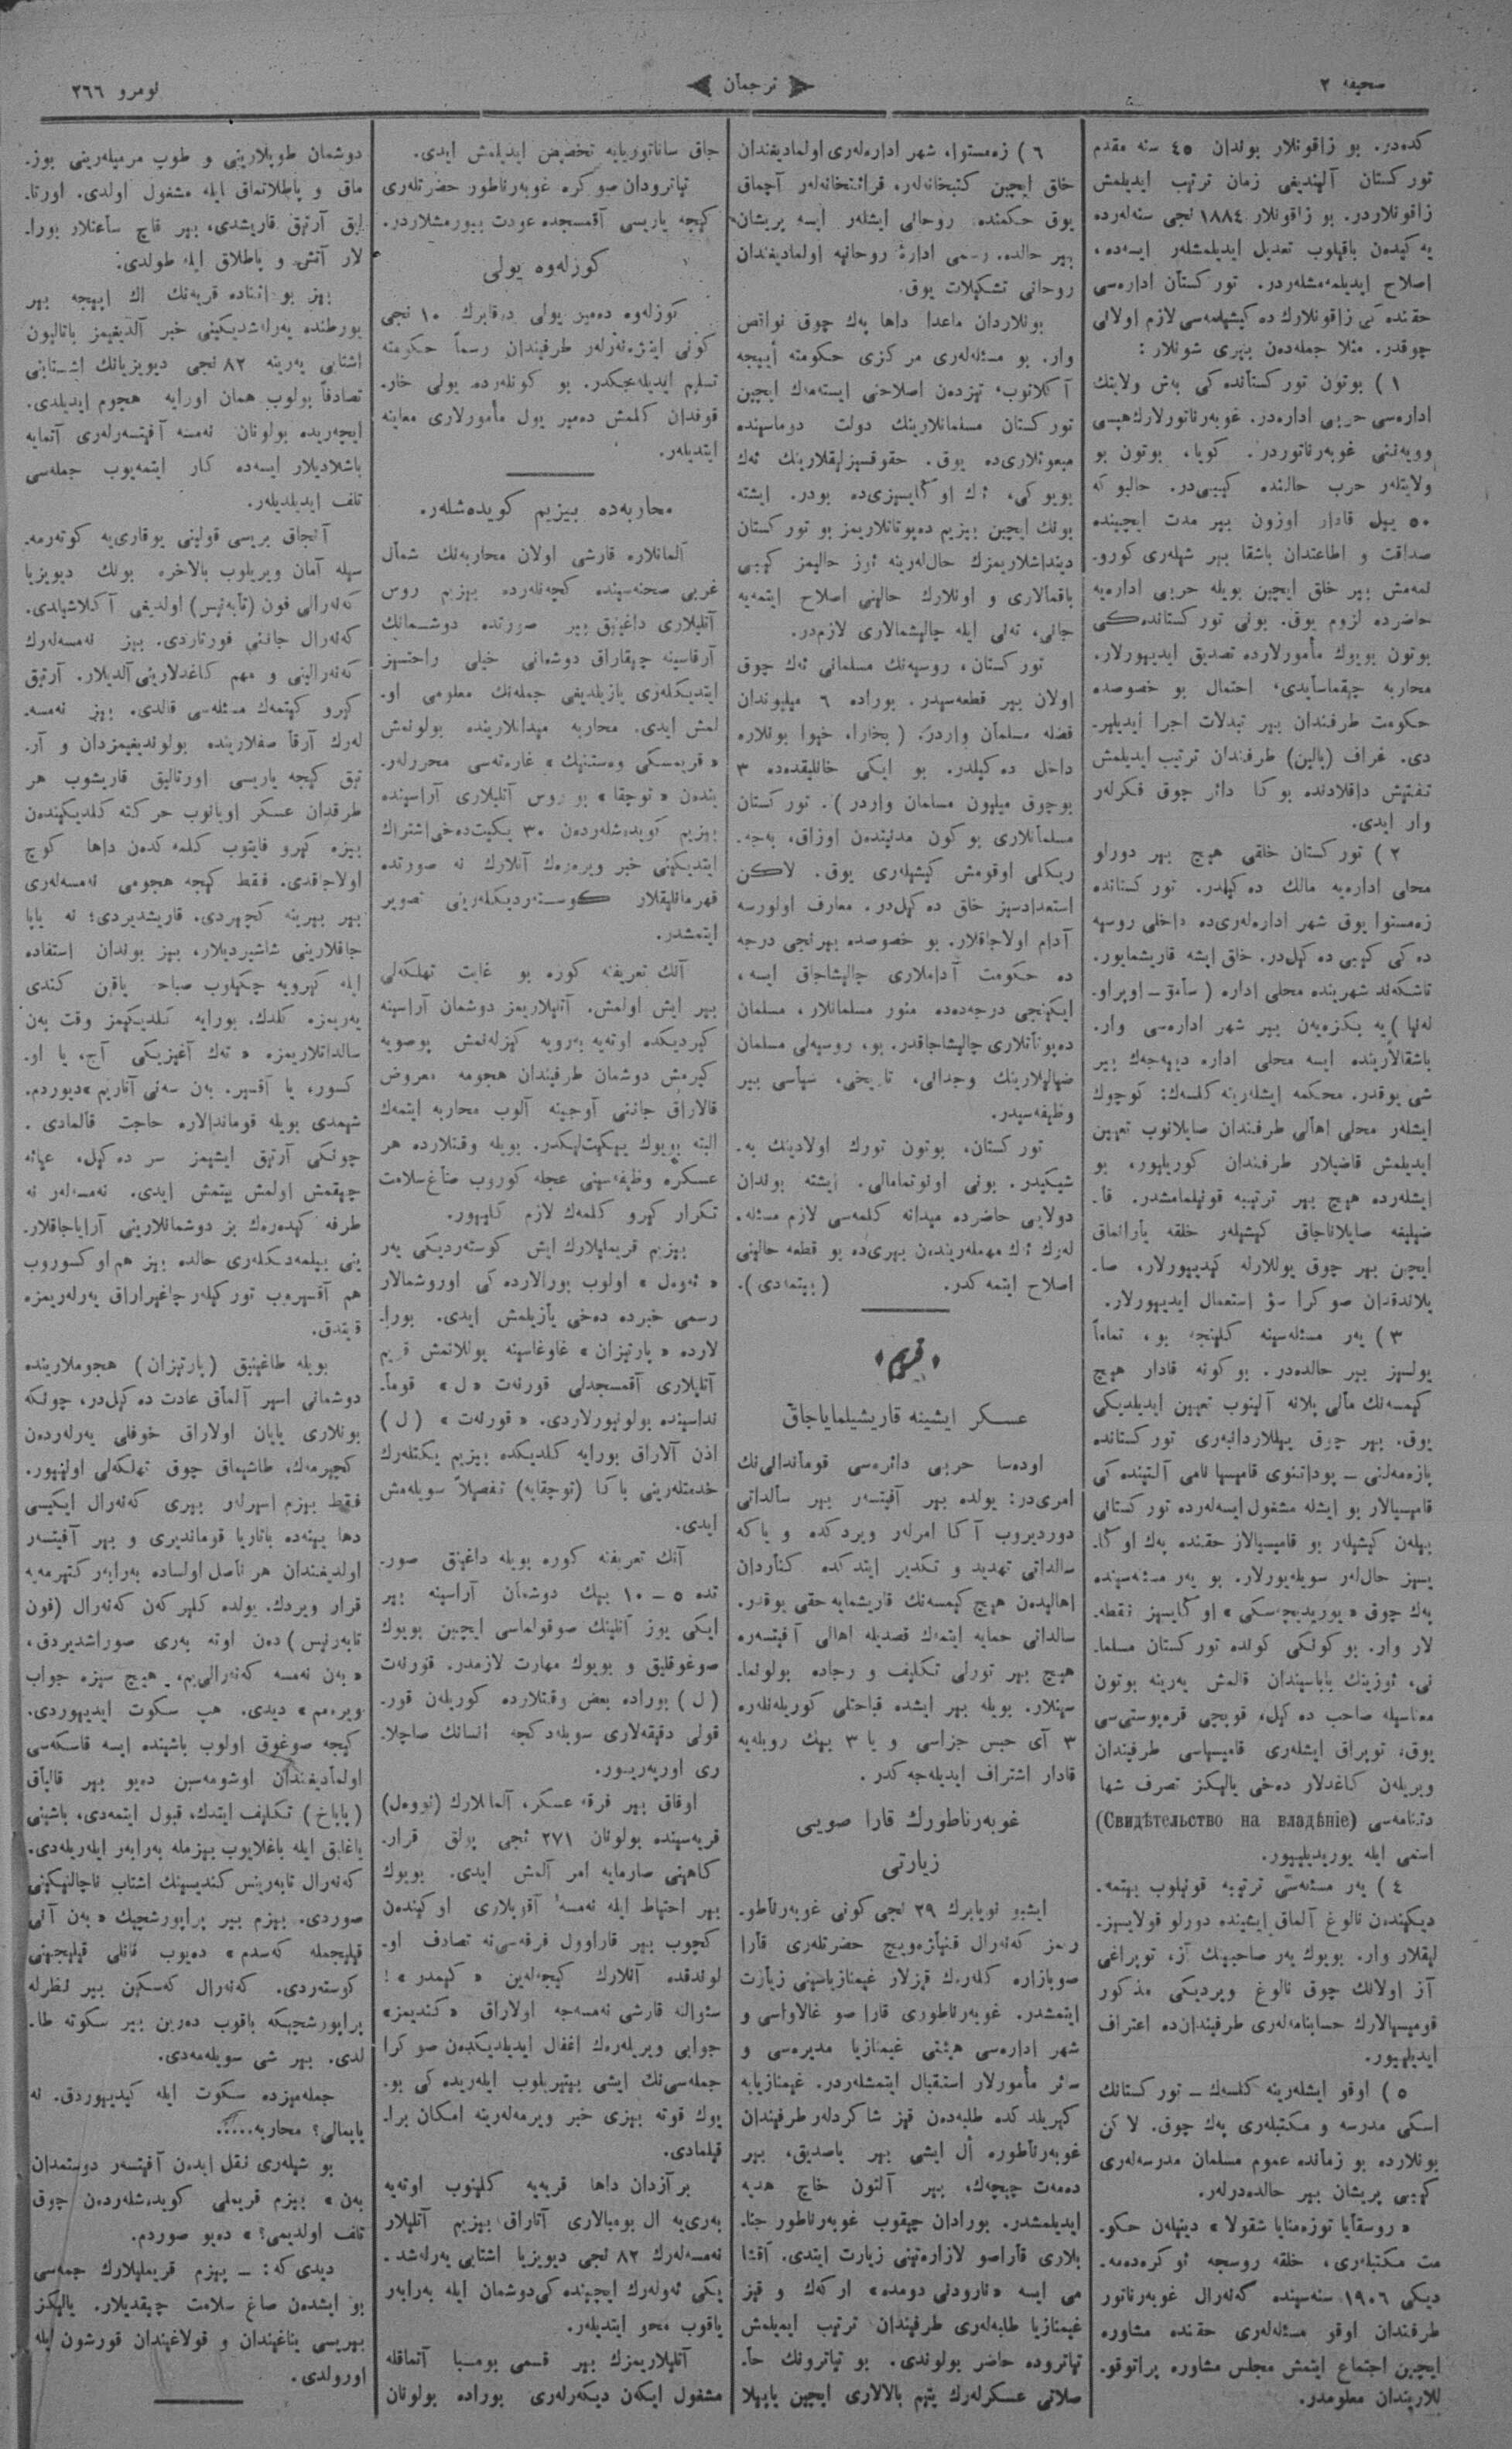 صحيفه ٢
ترجمان
نومرو ٢٦٦
كده‌در. بو زاقونلار بوندان ٤٥ سنه مقدم
توركستان آلينديغى زمان ترتيب ايديلمش
زاقونلاردر. بو زاقونلار ١٨٨٤ نجى سنه‌لرده
يه‌كيدن باقيلوب تعديل ايديلمشلر ايسه‌ده،
اصلاح ايديلمه‌مشله‌ردر. توركستان اداره‌سى
حقنده‌كى زاقونلارك ده‌كيشيلمه‌سى لازم اولانى
چوقدر. مثلا جمله‌دن بيرى شونلار:
١) بوتون توركستانده‌كى به‌ش ولايتك
اداره‌سى حربى اداره‌در. غوبه‌رناتورلارك‌هپسى
وويه‌ننى غوبه‌رناتوردر. كويا، بوتون بو
ولايتلر حرب حالنده كيبى‌در. حالبوكه
٥٠ ييل قادار اوزون بير مدت ايچينده
صداقت و اطاعتدان باشقا بير شيله‌رى كورو-
لمه‌مش بير خلق ايچين بويله حربى اداره‌يه
حاضرده لزوم يوق. بونى توركستانده‌كى
بوتون بويوك مأمورلارده تصديق ايدييورلار.
محاربه چيقماسايدى، احتمال بو خصوصده
حكومت طرفندان بير تبدلات اجرا ايديلير-
دى. غراف (پالين) طرفندان ترتيب ايديلمش
تفتيش داقلادنده بوكا دائر چوق فكرلر
وار ايدى.
٢) توركستان خلقى هيچ بير دورلو
محلى اداره‌يه مالك ده‌كيلدر. توركستانده
زه‌مستوا يوق شهر اداره‌له‌رى‌ده داخلى روسيه
ده‌كى كيبى ده‌كيل‌در. خلق ايشه قاريشمايور.
تاشكه‌ند شهرينده محلى اداره (سأمو-اوپراو-
له‌نيا)يه بكزه‌يه‌ن بير شهر اداره‌سى وار.
باشقالارينده ايسه محلى اداره دييه‌جه‌ك بير
شى يوقدر. محكمه ايشله‌رينه كلسه‌ك: كوچوك
ايشلر محلى اهالى طرفندان صايلانوب تعيين
ايديلمش قاضيلار طرفندان كوريليور، بو
ايشلرده هيچ بير ترتيبه قونيلمامشدر. قا-
ضيليغه صايلاناجاق كيشيلر خلقه يارانماق
ايچين بير چوق يوللارله كيدييورلار، صا-
يلاندقدان صوكرا سؤ استعمال ايدييورلار.
٣) يه‌ر مسئله‌سينه كلينجه بو، تماماً
يولسز بير حالده‌در. بوكونه قادار هيچ
كيمسه‌نك مالى پلانه آلينوب تعيين ايديلديكى
يوق. بير چوق ييللاردانبه‌رى توركستانده
پازه‌مه‌لنى-پوداتنوى قاميسيا نامى آلتينده‌كى
قاميسيالار بو ايشله مشغول ايسه‌لرده توركستانى
بيله‌ن كيشيلر بو قاميسيالار حقنده په‌ك اوكا-
يسيز حاللر سويله‌يورلار. بو يه‌ر مسئه‌سينده
په‌ك چوق «يوريديچه‌سكى» اوكايسيز نقطه-
لار وار. بوكونكى كونده توركستان مسلما-
نى، ئوزينك باباسيندان قالمش يه‌رينه بوتون
معناسيله صاحب ده‌كيل، قويجى قره‌پوستى‌سى
يوق، توپراق ايشله‌رى قاميسياسى طرفيندان
ويريله‌ن كاغدلار ده‌خى يالكز تصرف شها
دتنامه‌سى (Свидѣтельство на владѣніе)
اسمى ايله يوريديليور.
٤) يه‌ر مسئه‌سى ترتيبه قونيلوب بيتمه-
ديكيندن نالوغ آلماق ايشينده دورلو قولايسز-
لقلار وار. بويوك يه‌ر صاحبينك آز، توپراغى
آز اولانك چوق نالوغ ويرديكى مذكور
قوميسيالارك حسابنامه‌لرى طرفيندان‌ده اعتراف
ايديليور.
٥) اوقو ايشله‌رينه كلسه‌ك-توركستانك
اسكى مدرسه و مكتبله‌رى په‌ك چوق. لاكن
بونلارده بو زمانده عموم مسلمان مدرسه‌له‌رى
كيبى پريشان بير حالده‌درلر.
«روسقايا توزه‌منايا شقولا» دينيله‌ن حكو-
مت مكتبله‌رى، خلقه روسچه ئوكره‌ده‌مه-
ديكى ١٩٠٦ سنه‌سينده كه‌نه‌رال غوبه‌رناتور
طرفندان اوقو مسئله‌له‌رى حقنده مشاوره
ايچين اجتماع ايتمش مجلس مشاوره پراتوقو-
للاريندان معلومدر.
٦) زه‌مستوا، شهر اداره‌له‌رى اولماديغندان
خلق ايچين كتبخانه‌لر، قرائتخانه‌لر آچماق
يوق حكمنده. روحانى ايشلر ايسه پريشان
بير حالده. رسمى ادارۀ روحانيه اولماديغندان
روحانى تشكيلات يوق.
بونلاردان ماعدا داها په‌ك چوق نواقص
وار. بو مسئله‌له‌رى مركزى حكومته أييجه
آكلاتوب، تيزدن اصلاحنى ايسته‌مك ايچين
توركستان مسلمانلارينك دولت دوماسينده
مبعوثلارى‌ده يوق. حقوقسزلقلارينك ئه‌ك
بويوكى، ئه‌ك اوكايسيزى‌ده بودر. ايشته
بونك ايچين بيزيم ده‌پوتاتلاريمز بو توركستان
دينداشلاريمزك حال‌له‌رينه ئوز حاليمز كيبى
باقمالارى و اونلارك حالينى اصلاح ايتمه‌يه
جانى، ته‌نى ايله چاليشمالارى لازم‌در.
توركستان، روسيه‌نك مسلمانى ئه‌ك چوق
اولان بير قطعه‌سيدر. بوراده ٦ ميليوندان
فضله مسلمان واردر. (بخارا، خيوا بونلاره
داخل ده‌كيلدر. بو ايكى خانليقده‌ده ٣
بوچوق ميليون مسلمان واردر). توركستان
مسلمانلارى بوكون مدنيتدن اوزاق، په‌جه-
ريكلى اوقومش كيشيله‌رى يوق. لاكن
استعدادسيز خلق ده‌كيل‌در. معارف اولورسه
آدام اولاجاقلار. بو خصوصده بيرنجى درجه
ده حكومت آداملارى چاليشاجاق ايسه،
ايكينجى درجه‌ده‌ده منور مسلمانلار، مسلمان
ده‌پوتاتلارى چاليشاجاقدر. بو، روسيه‌لى مسلمان
ضياليلارينك وجدانى، تاريخى، سياسى بير
وظيفه‌سيدر.
توركستان، بوتون تورك اولادينك به-
شيكيدر. بونى اونوتمامالى. ايشته بوندان
دولايى حاضرده ميدانه كلمه‌سى لازم مسئله-
له‌رك ئه‌ك مهمله‌ريندن بيرى‌ده بو قطعه حالينى
اصلاح ايتمه‌كدر. (بيتمه‌دى).
قريم
عسكر ايشينه قاريشيلماياجاق
اوده‌سا حربى دائره‌سى قوماندانى‌نك
امرى‌در: يولده بير آفيتسه‌ر بير سالداتى
دورديروب آكا امرلر ويردكده و ياكه
سالداتى تهديد و تكدير ايتدكده كناردان
اهاليدن هيچ كيمسه‌نك قاريشمايه حقى يوقدر.
سالداتى حمايه ايتمك قصديله اهالى آفيتسه‌ره
هيچ بير تورلى تكليف و رجاده بولونما-
سينلار. بويله بير ايشده قباحتلى كوريله‌نله‌ره
٣ آى حبس جزاسى و يا ٣ بيك روبله‌يه
قادار اشتراف ايديله‌جه‌كدر.
غوبه‌رناطورك قارا صويى
زيارتى
ايشبو نويابرك ٢٩ نجى كونى غوبه‌رناطو-
رمز كه‌نه‌رال قنيازه‌ويچ حضرتله‌رى قارا
صوبازاره كله‌رك قيزلار غيمنازياسينى زيارت
ايتمشدر. غوبه‌رناطورى قارا صو غالاواسى و
شهر اداره‌سى هيئتى غيمنازيا مديره‌سى و
سائر مأمورلار استقبال ايتمشله‌ردر. غيمنازيايه
كيريلدكده طلبه‌دن قيز شاكردلر طرفيندان
غوبه‌رناطوره أل ايشى بير ياصديق، بير
ده‌مه‌ت چيچه‌ك، بير آلتون خاچ هديه
ايديلمشدر. بورادان چيقوب غوبه‌رناطور جنا-
بلارى قاراصو لازاره‌تينى زيارت ايتدى. آقشا
مى ايسه «نارودنى دومده» اركه‌ك و قيز
غيمنازيا طلبه‌له‌رى طرفيندان ترتيب ايديلمش
تياتروده حاضر بولوندى. بو تياترونك حا-
صلاتى عسكرله‌رك يتيم بالالارى ايچين ياپيلا
جاق ساناتوريايه تخصيص ايديلمش ايدى.
تياترودان صوكره غوبه‌رناطور حضرتله‌رى
كيچه ياريسى آقمسجده عودت بيورمشلاردر.
كوزله‌وه يولى
كوزله‌وه ده‌مير يولى دقابرك ١٠ نجى
كونى اينژه‌نه‌رلر طرفيندان رسماً حكومته
تسليم ايديله‌جكدر. بو كونلرده يولى خار-
قوفدان كلمش ده‌مير يول مأمورلارى معاينه
ايتديلر.
محاربه‌ده بيزيم كويده‌شلر.
آلمانلاره قارشى اولان محاربه‌نك شمال
غربى صحنه‌سينده كچه‌نلرده بيزيم روس
آتليلارى داغينق بير صورتده دوشمانك
آرقاسينه چيقاراق دوشمانى خيلى راحتسز
ايتديكله‌رى يازيلديغى جمله‌نك معلومى او-
لمش ايدى. محاربه ميدانلارينده بولونمش
«قريمسكى وه‌ستنيك» غازه‌ته‌سى محررلر-
يندن «توچقا» بو روس آتليلارى آراسينده
بيزيم كويده‌شله‌ردن ٣٠ يكيت‌ده‌خى اشتراك
ايتديكينى خبر ويره‌رك آنلارك نه صورتده
قهرمانليقلار كوسته‌رديكله‌رينى تصوير
ايتمشدر.
آنك تعريفنه كوره بو غايت تهلكه‌لى
بير ايش اولمش. آتليلاريمز دوشمان آراسينه
كيرديكده اوته‌يه به‌رويه كيزله‌نمش پوصويه
كيرمش دوشمان طرفيندان هجومه معروض
قالاراق جاننى آوجينه آلوب محاربه ايتمه‌ك
البته بويوك ييكيت‌ليكدر. بويله وقتلارده هر
عسكره وظيفه‌سينى عجله كوروب صاغ‌سلامت
تكرار كيرو كلمه‌ك لازم كلييور.
بيزيم قريمليلارك ايش كوسته‌رديكى يه‌ر
«ئه‌وه‌ل» اولوب بورالارده‌كى اوروشمالار
رسمى خبرده ده‌خى يازيلمش ايدى. بورا-
لارده «پارتيزان» غاوغاسينه يوللانمش قريم
آتليلارى آقمسجدلى قورنه‌ت «ل» قوما-
نداسينده بولونيورلاردى. «قورنه‌ت» (ل)
اذن آلاراق بورايه كلديكده بيزيم يكتله‌رك
خدمتله‌رينى باكا (توچقايه) تفصيلاً سويله‌مش
ايدى.
آنك تعريفنه كوره بويله داغينق صور-
تده ٥-١٠ بيك دوشمان آراسينه بير
ايكى يوز آتلينك صوقولماسى ايچين بويوك
صوغوقليق و بويوك مهارت لازمدر. قورنه‌ت
(ل) بوراده بعض وقتلارده كوريله‌ن قور-
قولى دقيقه‌لارى سويله‌دكجه انسانك صاچلا-
رى اورپه‌ريور.
اوفاق بير فرقه عسكر، آلمانلارك (نوول)
قريه‌سينده بولونان ٢٧١ نجى پولق قرار-
كاهينى صارمايه امر آلمش ايدى. بويوك
بير احتياط ايله نه‌مسه آقوپلارى اوكيندن
كچوب بير قاراوول فرقه‌سى‌نه تصادف او-
لوندقده آنلارك كيجه‌له‌ين «كيمدر»!
سئوالنه قارشى نه‌مسه‌جه اولاراق «كنديمز»
جوابى ويريله‌رك اغفال ايديلديكدن صوكرا
جمله‌سى‌نك ايشى بيتيريلوب ايله‌ريده‌كى بو-
يوك قوته بيزى خبر ويرمه‌له‌رينه امكان برا-
قيلمادى.
بر آزدان داها قريه‌يه كلينوب اوته‌يه
به‌رى‌يه ال بومبالارى آتاراق بيزيم آتليلار
نه‌مسه‌له‌رك ٨٢ نجى ديويزيا اشتابى يه‌رله‌شد-
يكى ئه‌وله‌رك ايچينده‌كى‌دوشمان ايله به‌رابه‌ر
ياقوب محو ايتديلر.
آتليلاريمزك بير قسمى بومبا آتماقله
مشغول ايكه‌ن ديكه‌رله‌رى بوراده بولونان
دوشمان طوپلارينى و طوب مرميله‌رينى بوز-
ماق و پاطلاتماق ايله مشغول اولدى. اورتا-
لق آرتيق قاريشدى، بير قاچ سأعتلار بورا-
لار آتش و پاطلاق ايله طولدى.
بيز بو اثناده قريه‌نك اك اييجه بير
يورطنده يه‌رله‌شديكينى خبر آلديغيمز باتاليون
اشتابى يه‌رينه ٨٢ نجى ديويزيانك اشتابنى
تصادفاً بولوب همان اورايه هجوم ايديلدى.
ايچه‌ريده بولونان نه‌مسه آفيتسه‌رله‌رى آتمايه
باشلاديلار ايسه‌ده كار ايتمه‌يوب جمله‌سى
تلف ايديلديلر.
آنجاق بريسى قولينى يوقارى‌يه كوته‌رمه-
سيله آمان ويريلوب بالاخره بونك ديويزيا
كه‌نه‌رالى فون (تابه‌نيس) اولديغى آكلاشيلدى.
كه‌نه‌رال جاننى قورتاردى. بيز نه‌مسه‌له‌رك
كه‌نه‌رالينى و مهم كاغدلارينى آلديلار. آرتيق
كيرو كيتمه‌ك مسئله‌سى قالدى. بيز نه‌مسه-
له‌رك آرقا صفلارينده بولونديغيمزدان و آر-
تيق كيجه ياريسى اورتاليق قاريشوب هر
طرفدان عسكر اويانوب حركته كلديكيندن
بيزه كيرو قايتوب كلمه‌كدن داها كوچ
اولاجاقدى. فقط كيجه هجومى نه‌مسه‌له‌رى
بير بيرينه كچيردى. قاريشديردى؛ نه ياپا
جاقلارينى شاشيرديلار، بيز بوندان استفاده
ايله كيرويه چكيلوب صباحه ياقن كندى
يه‌ريمزه كلدك. بورايه كلديكيمز وقت به‌ن
سالداتلاريمزه «ته‌ك آغيزيكى آچ، يا او-
كسور، يا آقسير. به‌ن سه‌نى آتاريم» ديوردم.
شيمدى بويله قوماندالاره حاجت قالمادى.
چونكى آرتيق ايشيمز سر ده‌كيل، عيانه
چيقمش اولمش بيتمش ايدى. نه‌مسه‌لر نه
طرفه كيده‌رك بز دوشمانلارينى آراياجاقلار-
ينى بيلمه‌دكله‌رى حالده بيز هم اوكسوروب
هم آقسيروب توركيلر چاغيراراق يه‌رله‌ريمزه
قايتدق.
بويله طاغينيق (پارتيزان) هجوملارينده
دوشمانى اسير آلماق عادت ده‌كيل‌در، چونكه
بونلارى ياپان اولاراق خوفلى يه‌رله‌ردن
كچيرمه‌ك، طاشيماق چوق تهلكه‌لى اولييور.
فقط بيزم اسيرلر بيرى كه‌نه‌رال ايكيسى
دها يينه‌ده باتاريا قومانديرى و بير آفيتسه‌ر
اولديغندان هر ناصل اولساده به‌رابه‌ر كتيرمه‌يه
قرار ويردك. يولده كليركه‌ن كه‌نه‌رال (فون
تابه‌رنيس) دن اوته به‌رى صوراشديردق،
«به‌ن نه‌مسه كه‌نه‌رالى‌يم، هيچ سيزه جواب
ويره‌مم» ديدى. هب سكوت ايدييوردى.
كيجه صوغوق اولوب باشينده ايسه قاسكه‌سى
اولماديغندان اوشومه‌سين ده‌يو بير قالپاق
(پاپاخ) تكليف ايتدك، قبول ايتمه‌دى، باشينى
ياغلق ايله باغلايوب بيزمله به‌رابه‌ر ايله‌ريله‌دى.
كه‌نه‌رال تابه‌رينس كنديسينك اشتاب ناچالنيكينى
صوردى. بيزم بير پراپورشچيك «به‌ن آنى
قيليجمله كه‌سدم» ده‌يوب قانلى قيليجينى
كوسته‌ردى. كه‌نه‌رال كه‌سكين بير نظرله
پراپورشچيكه باقوب ده‌رين بير سكوته طا-
لدى. بير شى سويله‌مه‌دى.
جمله‌ميزده سكوت ايله كيدييوردق. نه
ياپمالى؟ محاربه.....
بو شيله‌رى نقل ايدن آفيتسه‌ر دوستمدان
به‌ن» بيزم قريملى كويده‌شله‌ردن چوق
تلف اولديمى؟» ده‌يو صوردم.
ديدى كه: - بيزم قريمليلارك جمه‌سى
بو ايشدن صاغ سلامت چيقديلار. يالكز
بيريسى يناغيندان و قولاغيندان قورشون ايله
اورولدى.